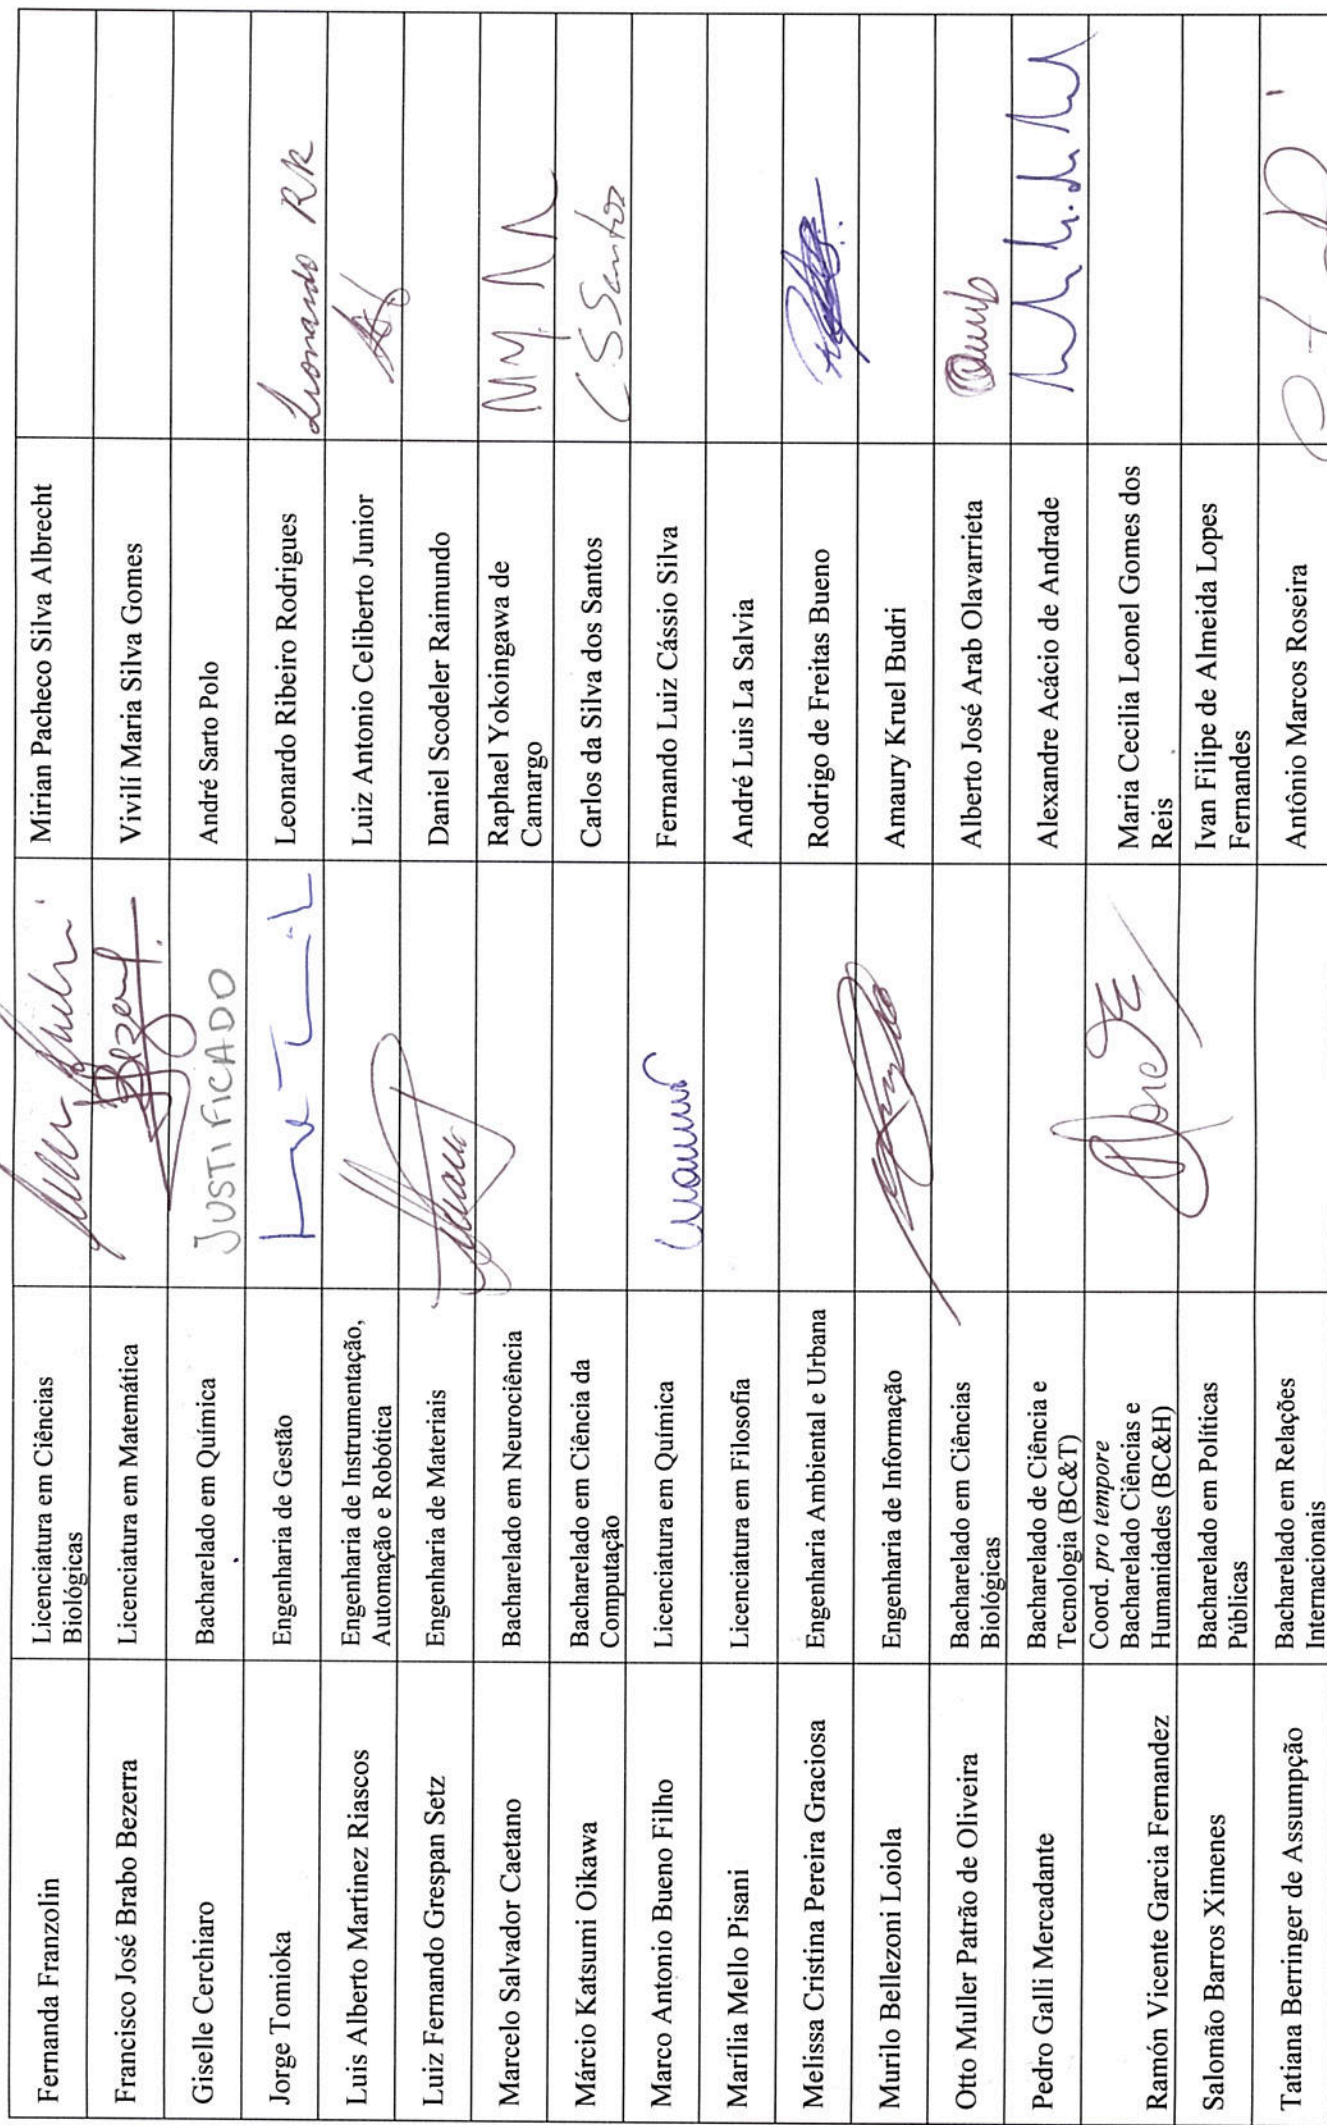 Fernanda Franzolin
Licenciatura em Ciências
Biológicas
Mirian Pacheco Silva Albrecht
Francisco José Brabo Bezerra
Licenciatura em Matemática
Bezerra
Vivilí Maria Silva Gomes
Giselle Cerchiaro
Bacharelado em Química
JUSTIFICADO
André Sarto Polo
Jorge Tomioka
Engenharia de Gestão
Leonardo Ribeiro Rodrigues
Leonardo RR
Luis Alberto Martinez Riascos
Engenharia de Instrumentação,
Automação e Robótica
Luiz Antonio Celiberto Junior
Luiz Fernando Grespan Setz
Engenharia de Materiais
Daniel Scodeler Raimundo
Marcelo Salvador Caetano
Bacharelado em Neurociência
Raphael Yokoingawa de
Camargo
Márcio Katsumi Oikawa
Bacharelado em Ciência da
Computação
Carlos da Silva dos Santos
CSSantos
Marco Antonio Bueno Filho
Licenciatura em Química
Fernando Luiz Cássio Silva
Marília Mello Pisani
Licenciatura em Filosofia
André Luis La Salvia
Melissa Cristina Pereira Graciosa
Engenharia Ambiental e Urbana
Rodrigo de Freitas Bueno
Murilo Bellezoni Loiola
Engenharia de Informação
Amaury Kruel Budri
Otto Muller Patrão de Oliveira
Bacharelado em Ciências
Biológicas
Alberto José Arab Olavarrieta
Pedro Galli Mercadante
Bacharelado de Ciência e
Tecnologia (BC&T)
Alexandre Acácio de Andrade
Ramón Vicente Garcia Fernandez
Coord. pro tempore
Bacharelado Ciências e
Humanidades (BC&H)
Maria Cecilia Leonel Gomes dos
Reis
Salomão Barros Ximenes
Bacharelado em Políticas
Públicas
Ivan Filipe de Almeida Lopes
Fernandes
Tatiana Berringer de Assumpção
Bacharelado em Relações
Internacionais
Antônio Marcos Roseira